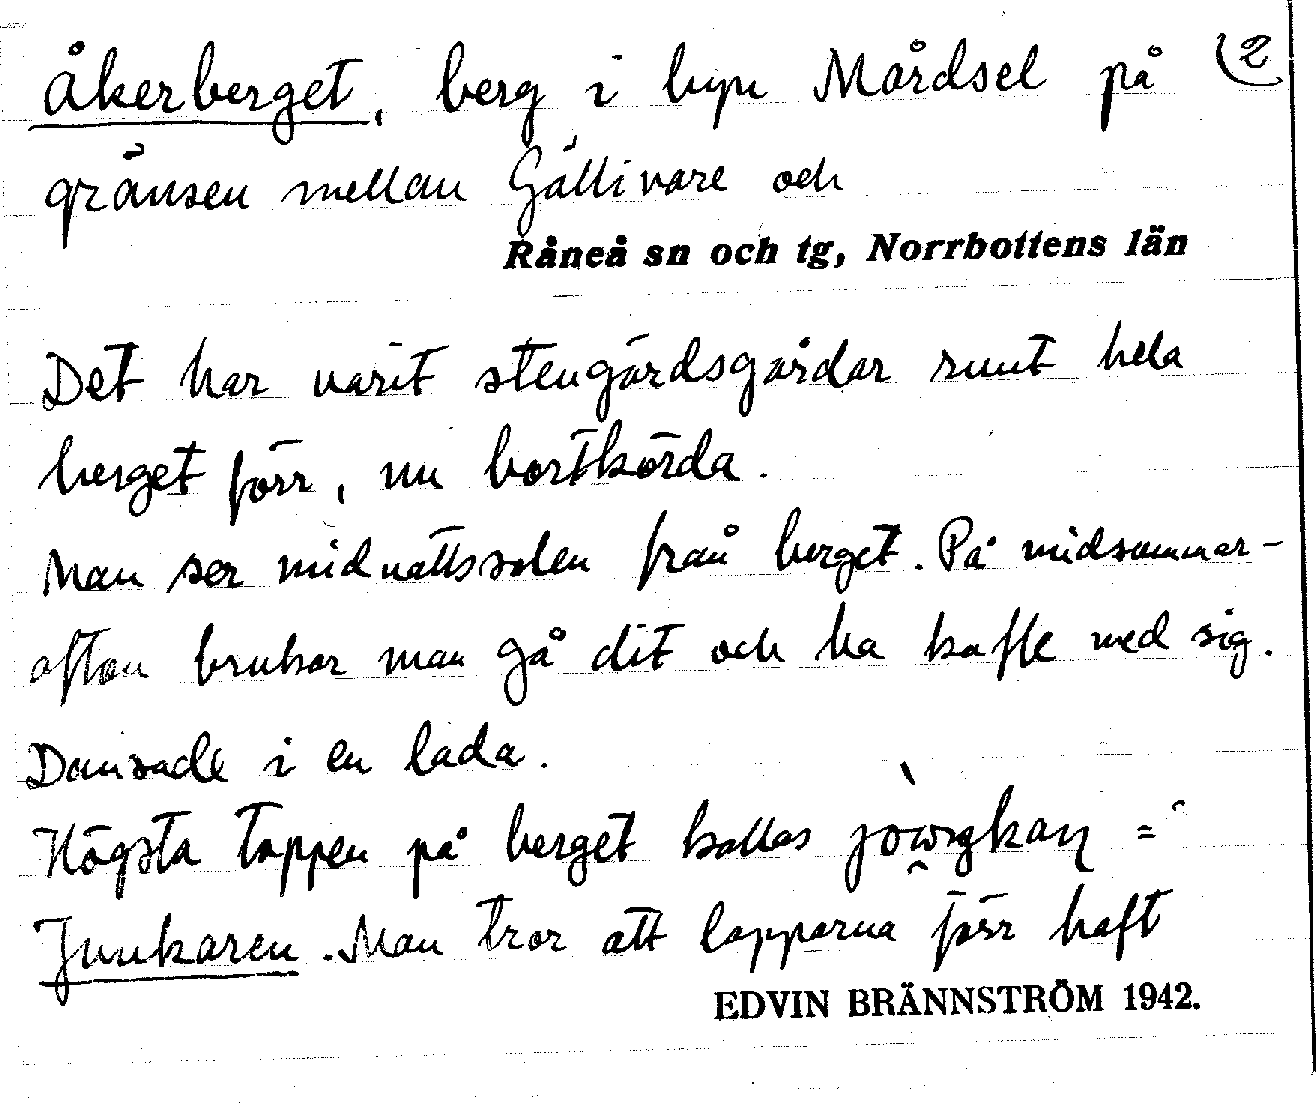 Åkerberget, berg i byn Mårdsel på (2
gränsen mellan Gällivare och
Råneå sn och tg, Norrbottens län
Det har varit stengärdsgårdar runt hela
berget förr, nu bortkörda.
Man ser midnattssolen från berget. På midsommar-
afton brukar man gå dit och ha kaffe med sig.
Dansade i en lada.
Högsta toppen på berget kallas =
Junkaren. Man tror att lapparna förr haft
EDVIN BRÄNNSTRÖM 1942.